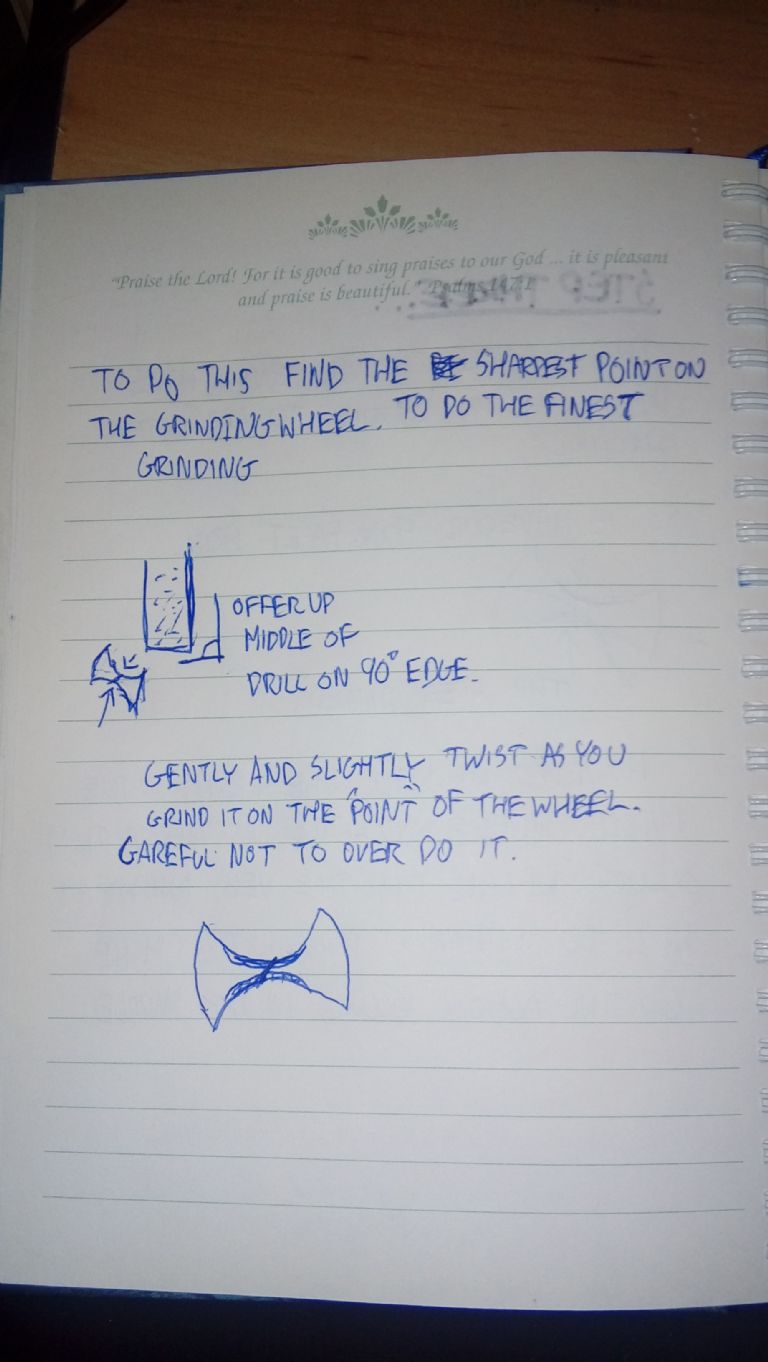 "Praise the Lord! For it is good to sing praises to our God ... it is pleasant
and praise is beautiful." Psalms 147:1
TO DO THIS FIND THE SHARPEST POINT ON
THE GRINDING WHEEL. TO DO THE FINEST
GRINDING
OFFER UP
MIDDLE OF
DRILL ON 90° EDGE.
GENTLY AND SLIGHTLY TWIST AS YOU
GRIND IT ON THE "POINT" OF THE WHEEL.
CAREFUL NOT TO OVER DO IT.